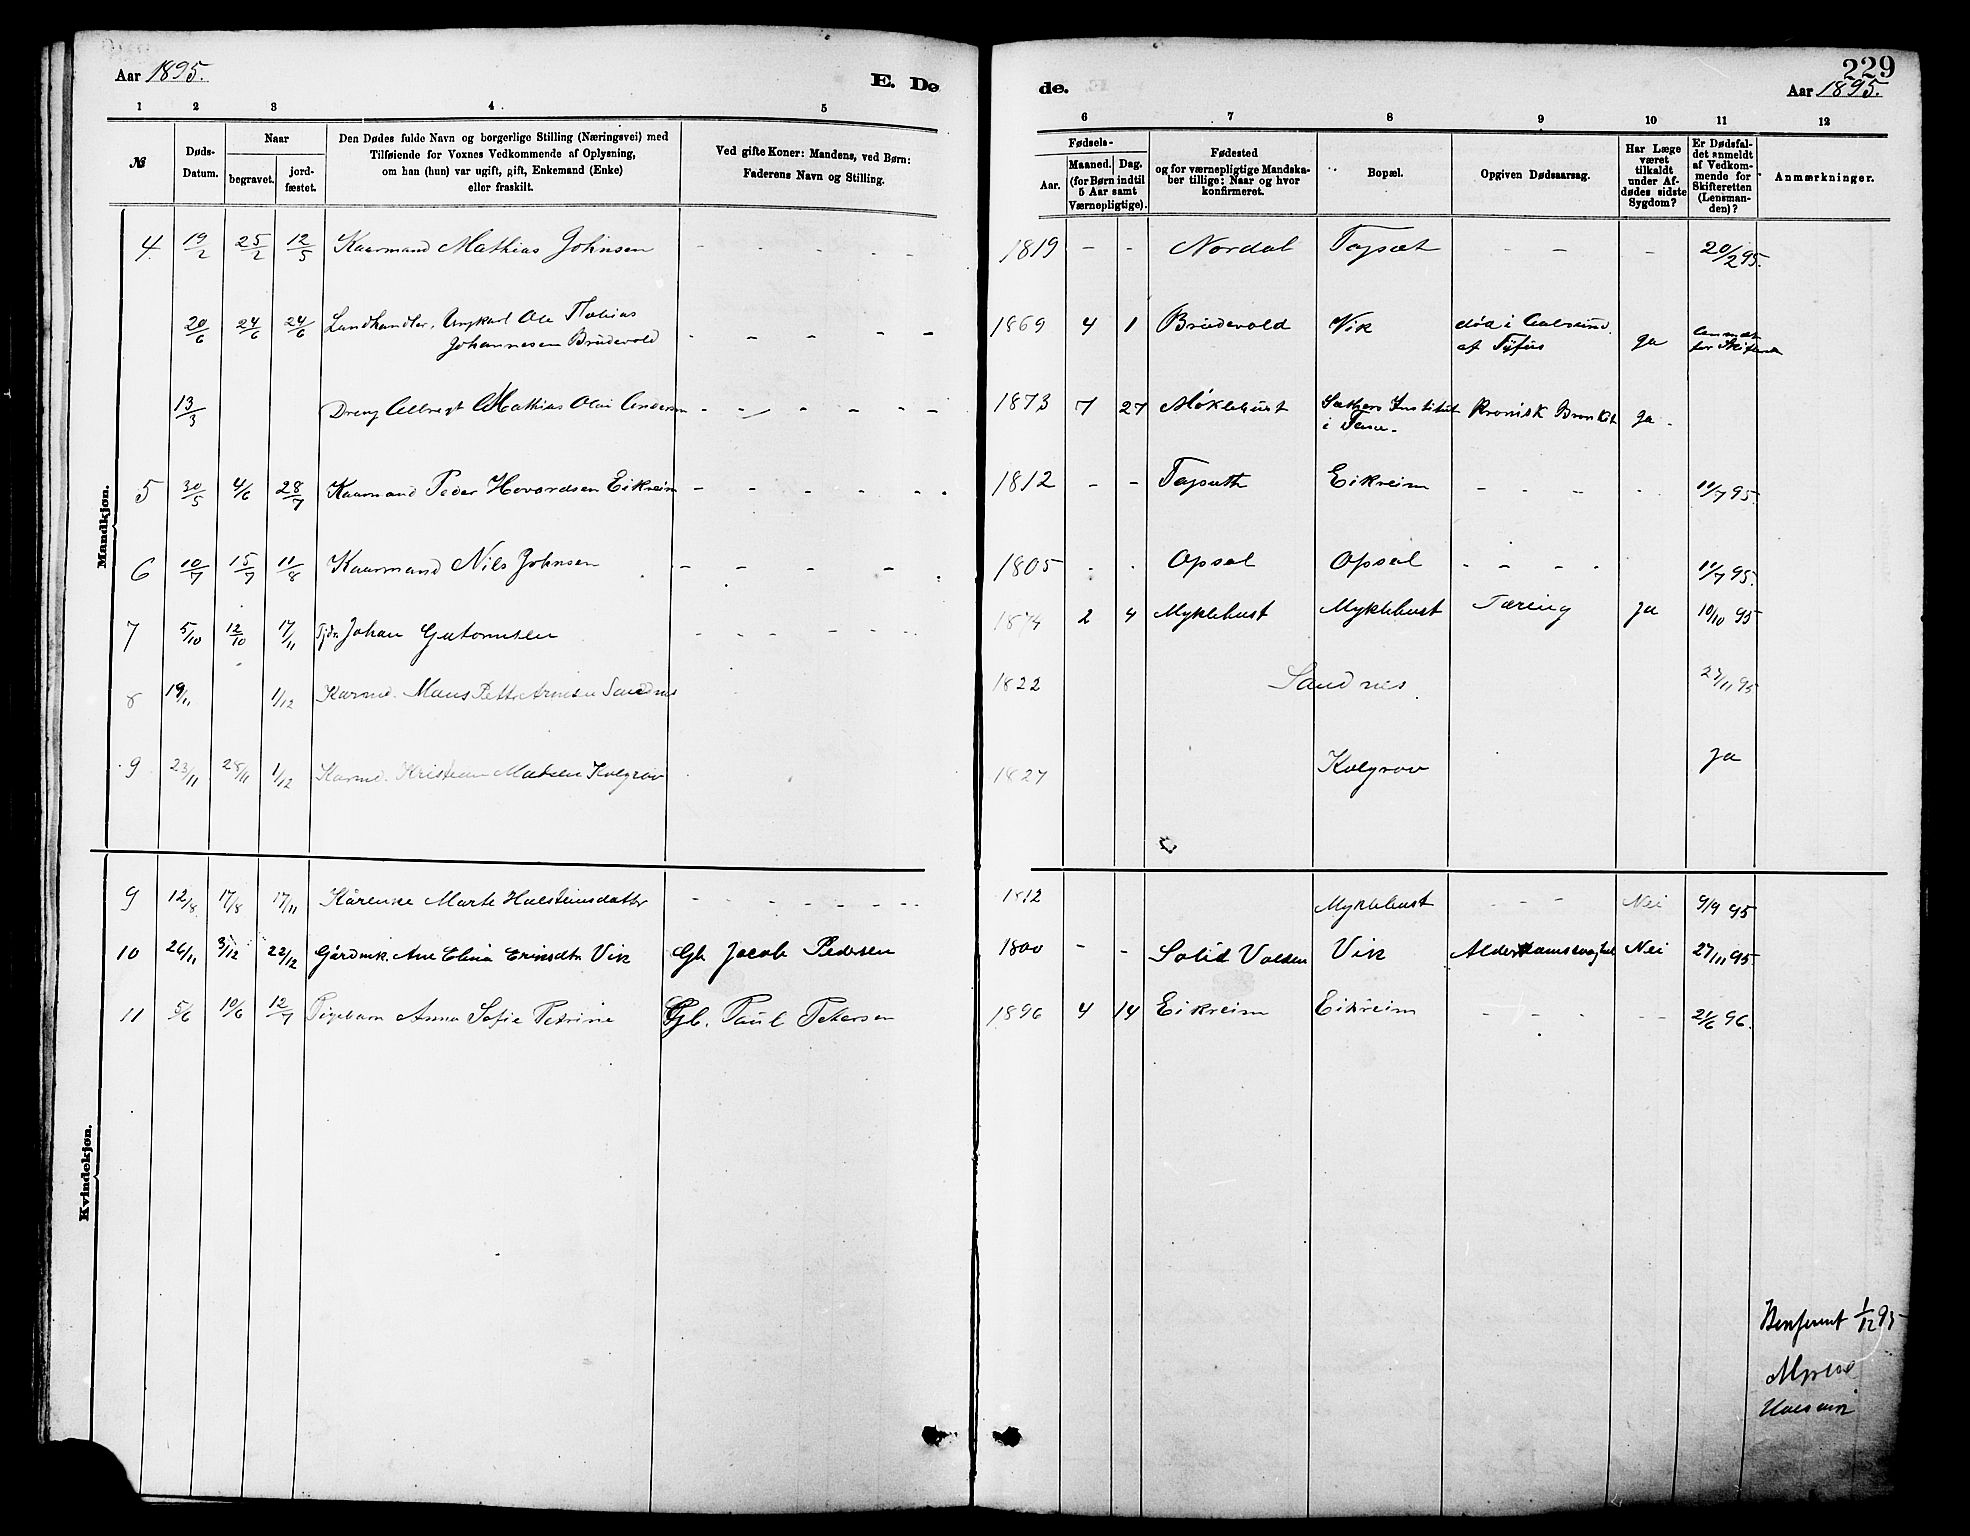 Aar 1895.
E. Dø
de.
229
Aar 1895.
1 2 3 4 5
6 7 8 9 10 11 12
№
Døds-Datum.
Naar
begravet.
jordfæstet.
Den Dødes fulde Navn og borgerlige Stilling (Næringsvei) med
Tilføiende for Voxnes Vedkommende af Oplysning,
om han (hun) var ugift, gift, Enkemand (Enke)
eller fraskilt.
Ved gifte Koner: Mandens, ved Børn:
Faderens Navn og Stilling.
Fødsels-
Aar.
Maaned. Dag.
(for Børn indtil
5 Aar samt
Værnepligtige).
Fødested
og for værnepligtige Mandska-
ber tillige: Naar og hvor
konfirmeret.
Bopæl.
Opgiven Dødsaarsag.
Har Læge
været
tilkaldt
under Af-
dødes sidste
Sygdom?
Er Dødsfal-
det anmeldt
af Vedkom-
mende for
Skifteretten
(Lensman-
den)?
Anmærkninger.
Mandkjøn.
4 19/2 25/2 12/5 Kaarmand Mathias Johnsen - - - - - 1819 - - Nordal Tapsæt - - - 20/2 95.
20/6 24/6 24/6 Landhandler, Ungkarl Ole Tobias
Johannesen Brudevold - - - - - 1869 4 1 Brudevold Vik død i Aalesund
af Tyfus ja
13/3 Dreng Albregt Mathias Olai Andersen - - - - - - 1873 7 27 Møklebust Institut
i Kronisk Bronkit ja.
5 30/5 4/6 28/7 Kaarmand Peder Hovardsen Eikreim - - - - - 1812 - - Tapseth Eikreim - - - - 11/7 95.
6 10/7 15/7 11/8 Kaarmand Nils Johnsen - - - - 1805 Opsal Opsal - - - - 11/7 95.
7 5/10 12/10 17/11 Johan Guttormsen - - - - - 1874 2 4 Myklebust Myklebust Tæring Ja 10/10 95
8 19/11 1/12 Karmd. Sandnes 1822 Sandnes 27/11 95
9 23/11 28/11 1/12 Karmd. Kristian Kolgrov 1827 Kolgrov Ja
Kvindekjøn.
9 12/8. 17/8 17/11 Kårenke Marte Halsteinsdatter - - - - - - 1812 Myklebust - - - Nei 9/9 95
10 26/11 3/12 22/12 Gårdmk. Ane Elina Eriksdtr Vik Gb. Jacob Pedersen 1800 - - Solid Volden Vik Alderdomssvaghed Nei 27/11 95.
11 5/6 10/6 12/7 Pigebarn Anna Sofie Petrine Gb. Paul Petersen 1896 4 14 Eikreim Eikreim - - - - - 21/6 96.
1/12 95